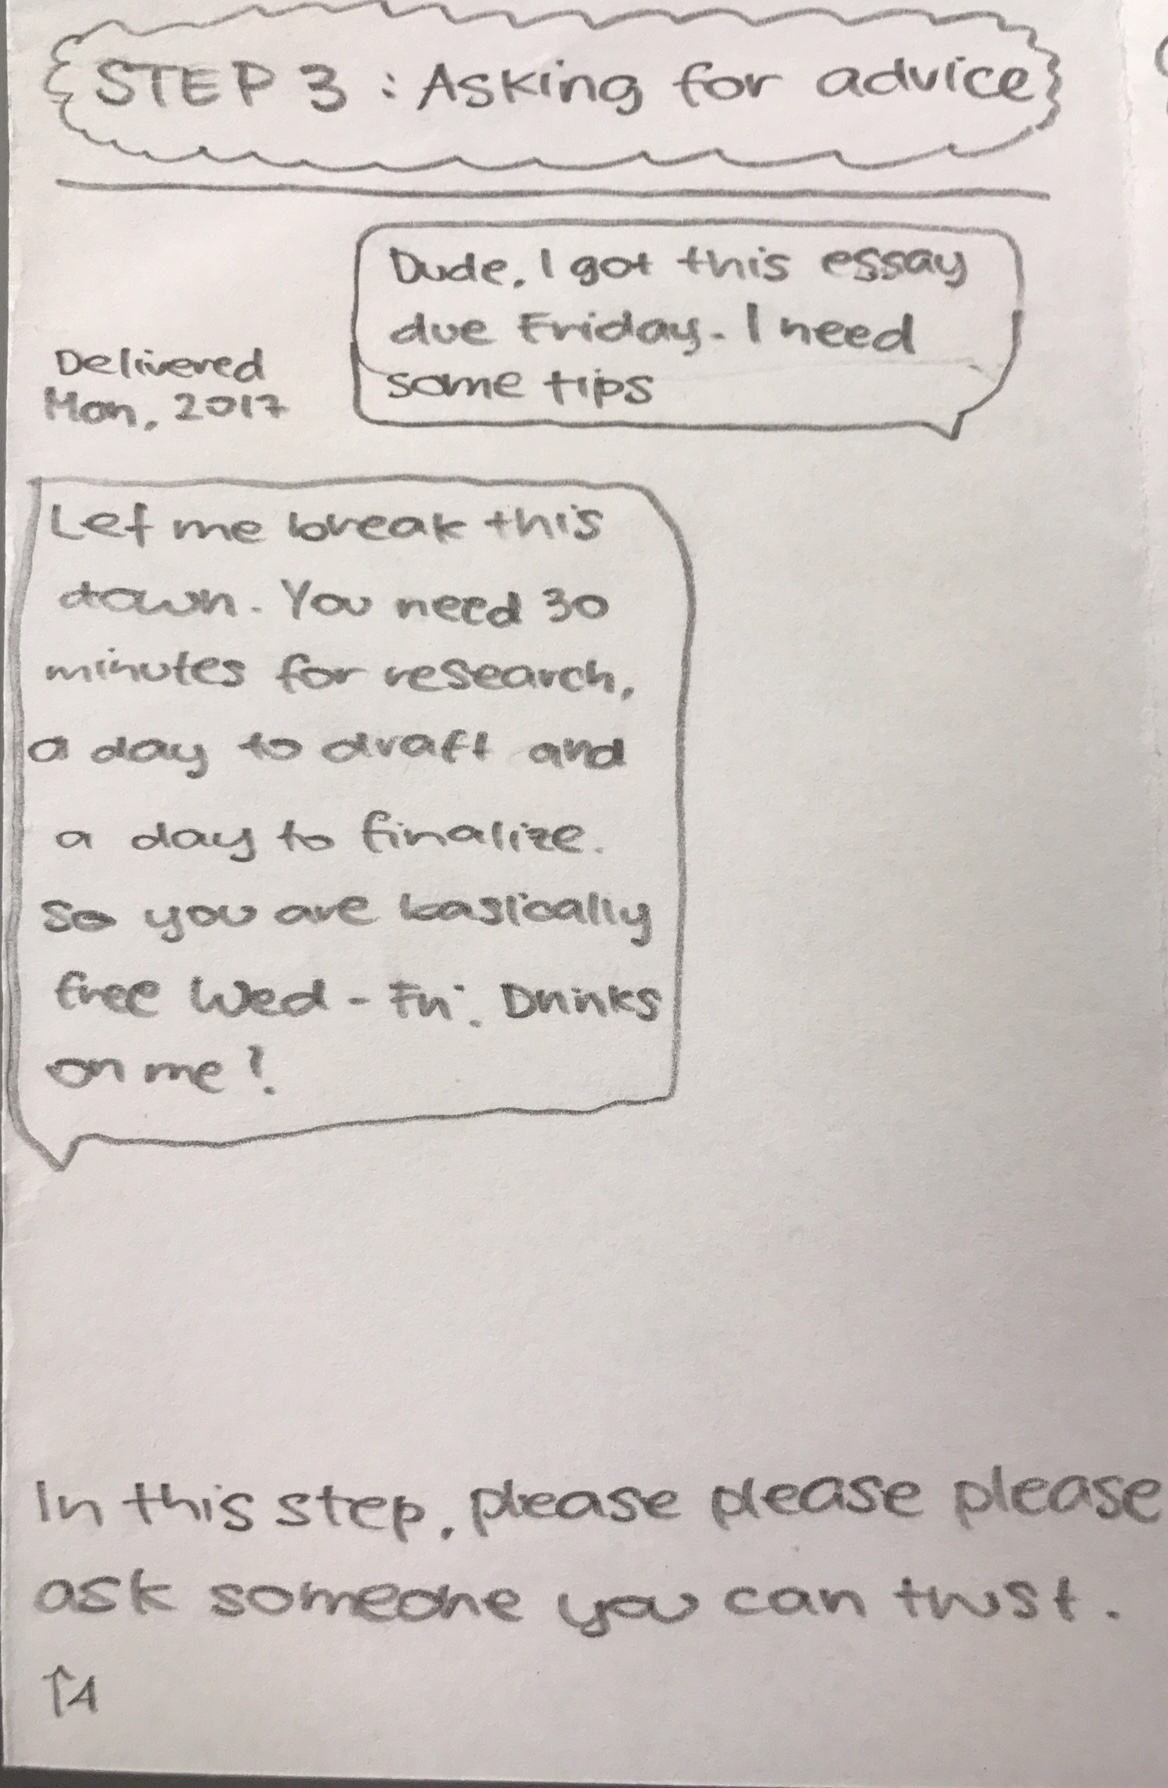 STEP 3 : Asking for advice
Dude, I got this essay
due Friday. I need
some tips
Delivered
Mon, 2017
Let me break this
down. You need 30
minutes for research,
a day to draft and
a day to finalize.
So you are basically
free Wed - Fri. Drinks
on me!
In this step, please please please
ask someone you can trust.